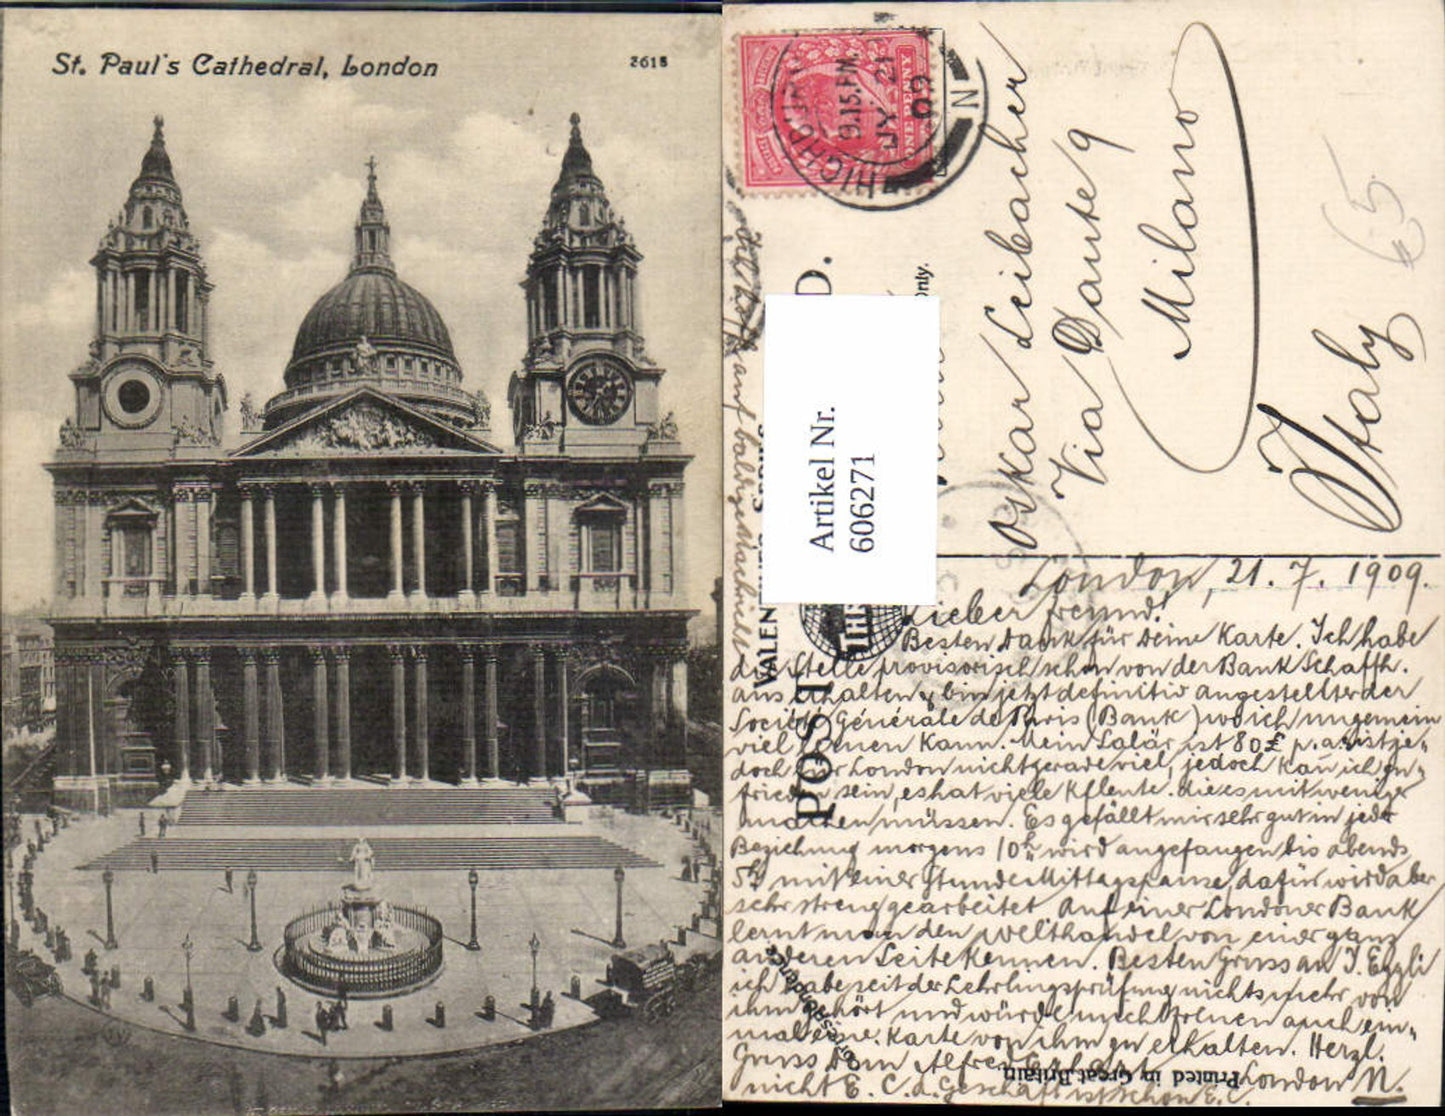 St. Paul's Cathedral, London
3618
HIGHB
9.15.PM
JY 21
09
N
ONE PENNY
POST
D.
VALEN
only.
Artikel Nr.
606271
Oskar Leibacher
Via Dante 9
Milano
Italy
65
London, 21. 7. 1909.
Lieber Freund!
Besten Dank für Deine Karte. Ich habe
die Stelle provisorisch schon von der Bank Schaffh.
aus erhalten & bin jetzt definitiv angestellt der
Société Générale de Paris (Bank) wo ich ungemein
viel lernen kann. Mein Salär ist 80£ p.a. ist je-
doch für London nicht gerade viel, jedoch kann ich zu-
frieden sein, es hat viele Kflente. die es mit weniger
machen müssen. Es gefällt mir sehr gut in jeder
Beziehung morgens 10h wird angefangen bis abends
5h mit einer Stunde Mittagspause, dafür wird aber
sehr streng gearbeitet Auf einer Londoner Bank
lernt man den Welthandel von einer ganz
anderen Seite kennen. Besten Gruss an J. Eggli
ich habe seit der Lehrlingsprüfung nichts mehr von
ihm gehört und würde mich freuen auch ein-
mal eine Karte von ihm zu erhalten. Herzl.
Gruss Dein Alfred London N.
nicht E. C. d. Geschäft ist schon E.C.
auf baldigst
Printed in Great Britain